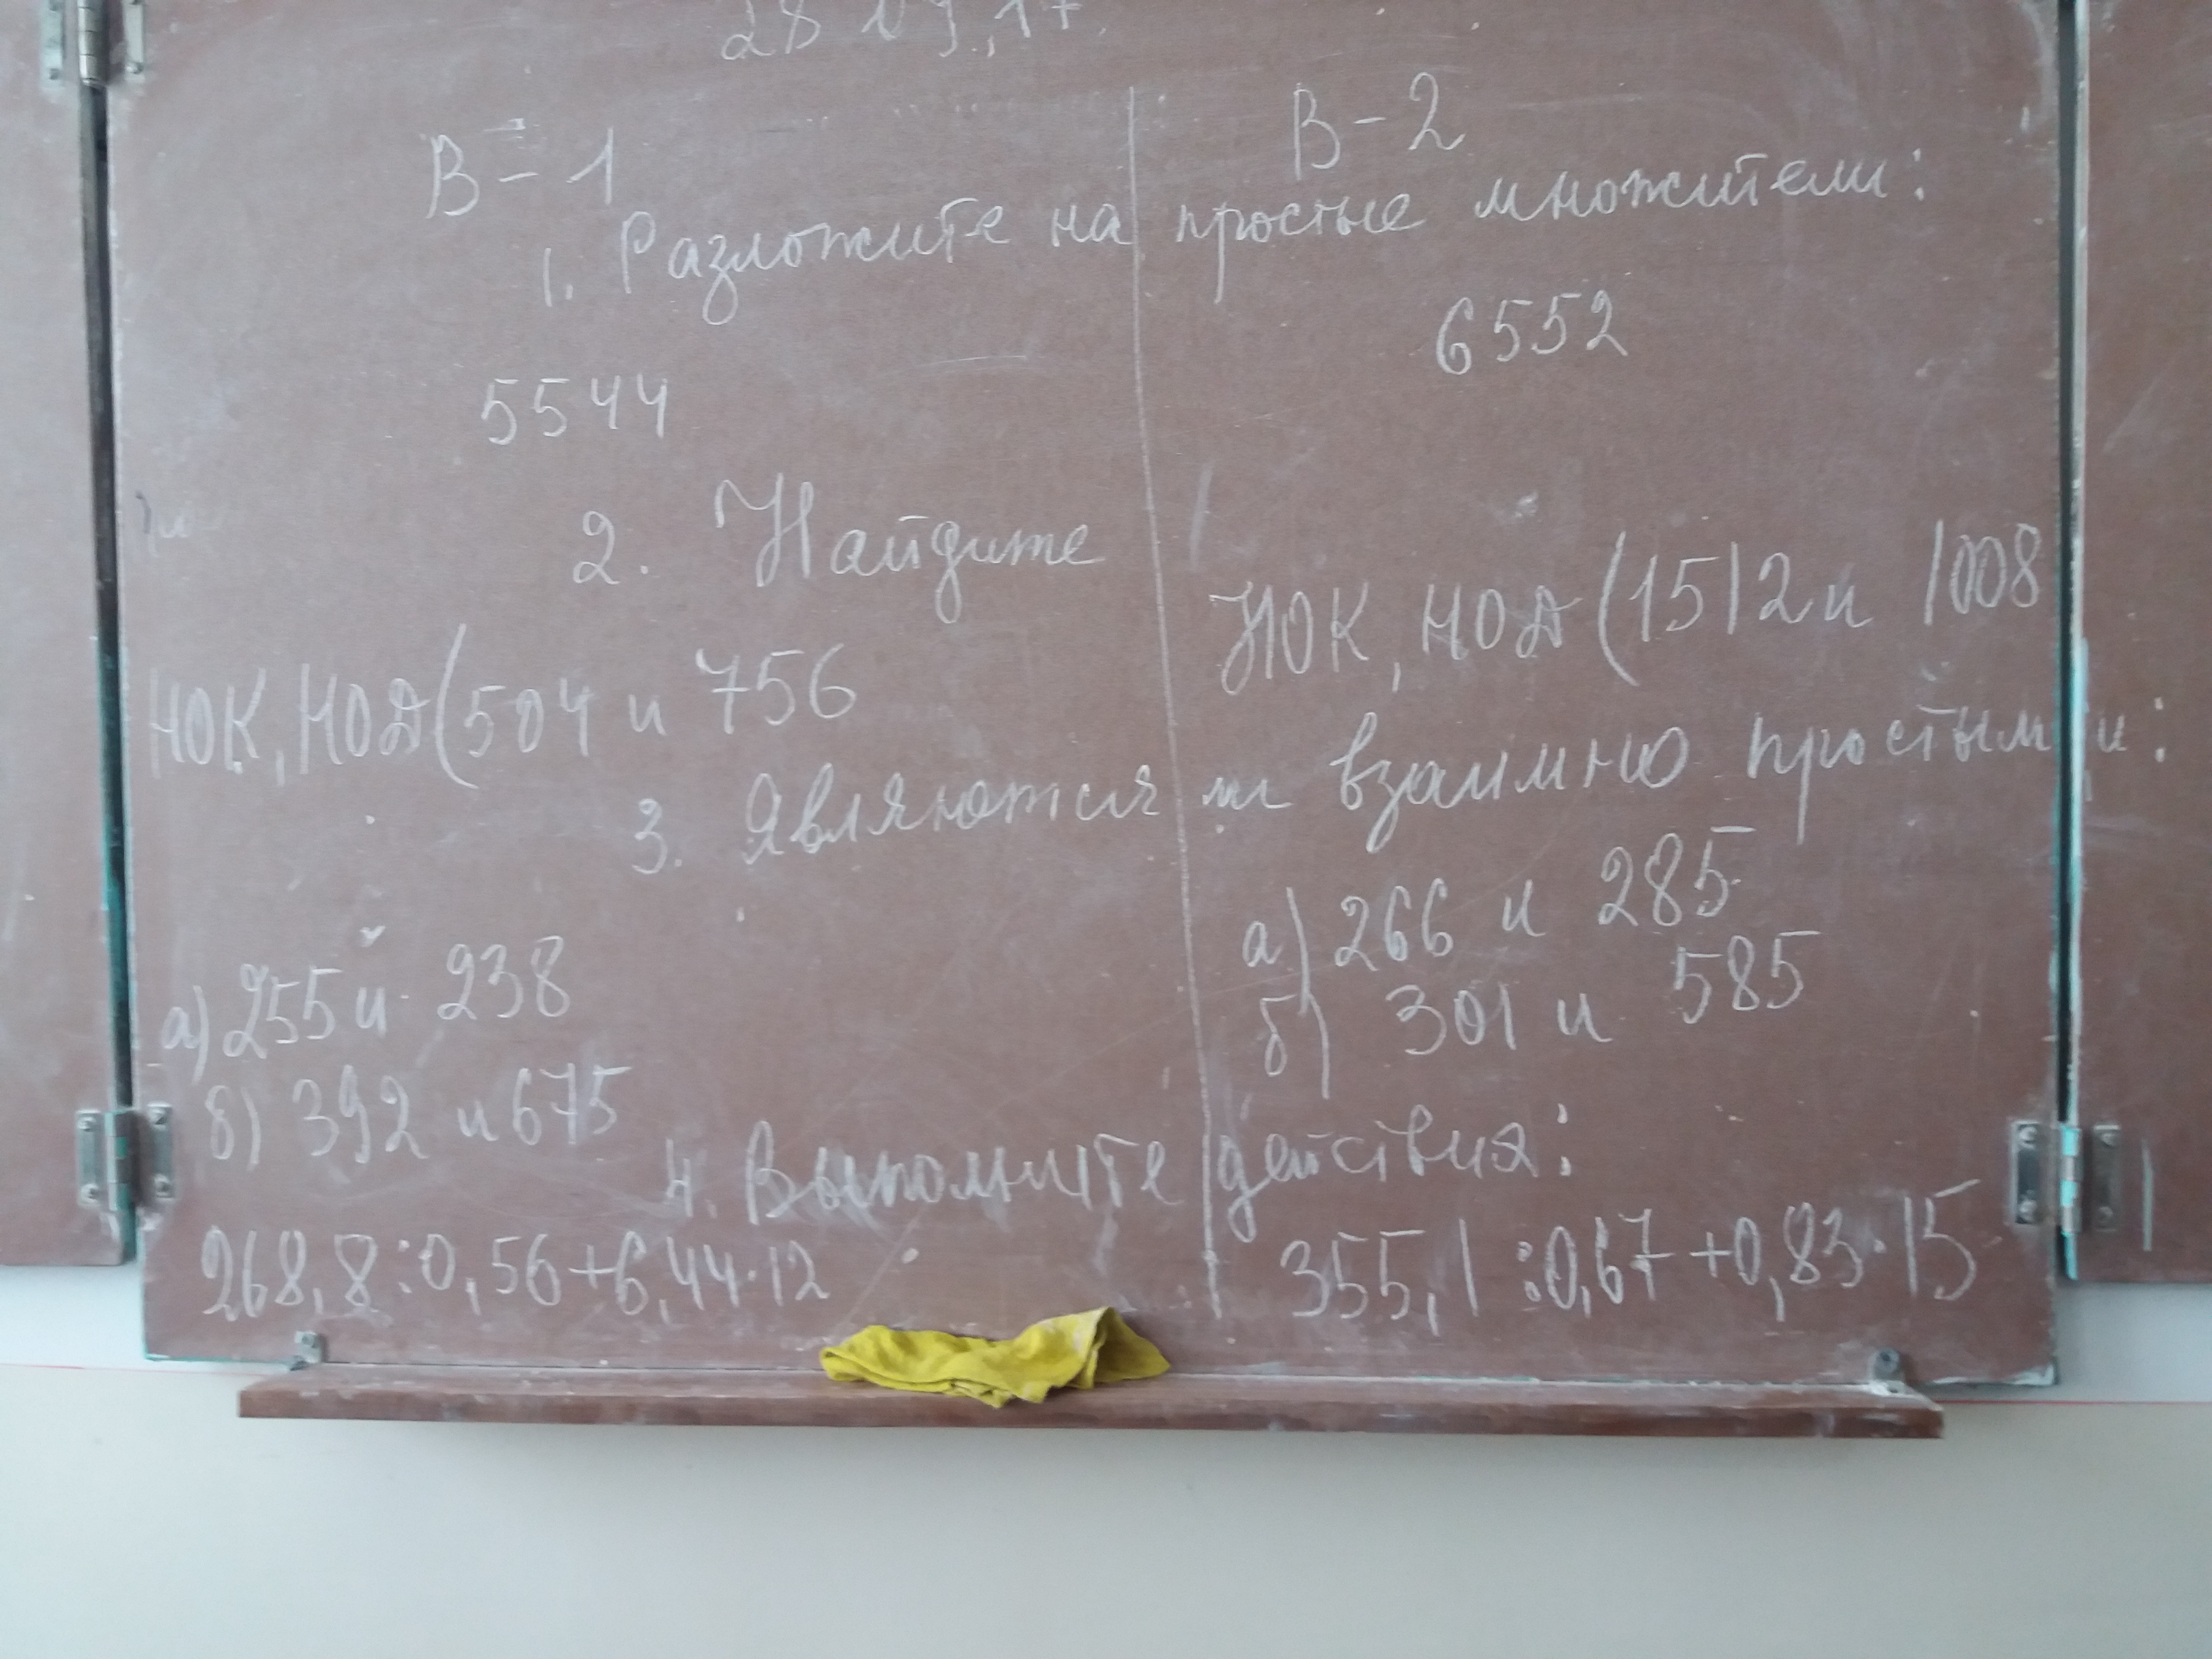 28 09.17.
В-1
В-2
1. Разложите на простые множители:
5544
6552
2. Найдите
НОК, НОД (504 и 756
НОК, НОД (1512 и 1008
3. Являются ли взаимно простыми:
а) 255 и 238
б) 392 и 675
а) 266 и 285
б) 301 и 585
4. Выполните действия:
268,8:0,56+6,44·12
355,1:0,67+0,83·15